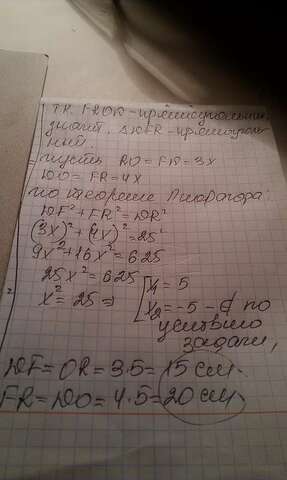 Т.к. FROD - прямоугольник,
значит, ΔDFR - прямоуголь-
ный.
пусть RO = FD = 3x
DO = FR = 4x
по теореме Пифагора:
DF² + FR² = DR²
(3x)² + (4x)² = 25²
9x² + 16x² = 625
25x² = 625
x² = 25 ⇒ [x₁ = 5
x₂ = -5 - ∉ по
условию
задачи,
DF = OR = 3·5 = 15 см.
FR = DO = 4·5 = 20 см.